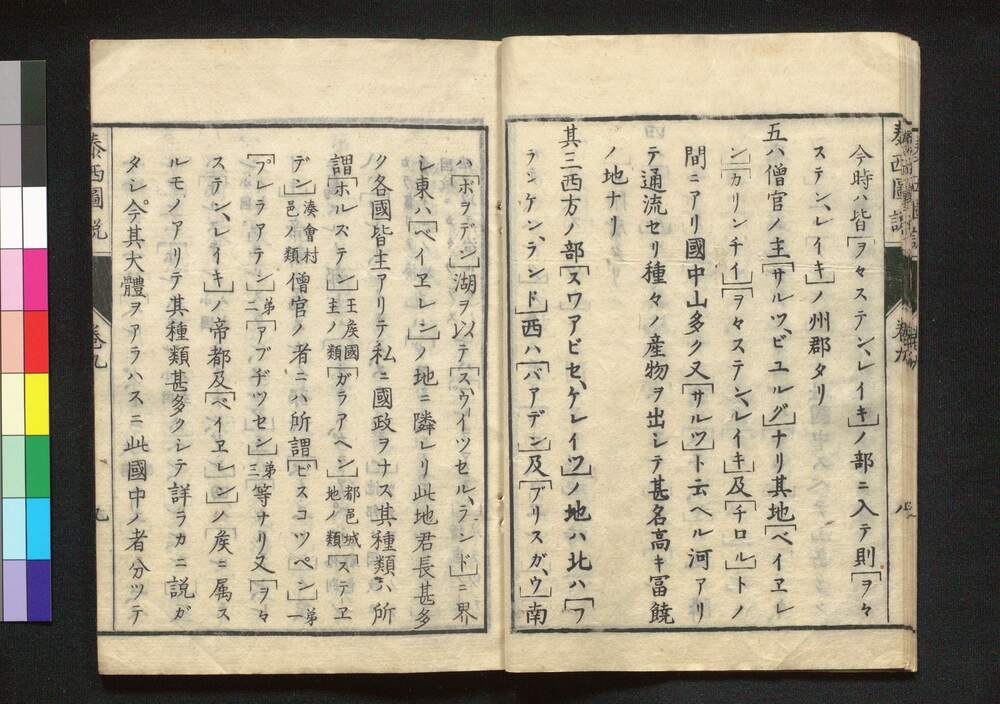 泰西圖說
卷九
八
今時ハ皆「ヲヽステン、レイキ」ノ部ニ入テ則「ヲヽ
ステン、レイキ」ノ州郡タリ
五ハ僧官ノ主「サルツ、ビユルグ」ナリ其地「ベイエレ
ン」「カリンチイ」「ヲヽステン、レイキ」及「チロル」トノ
間ニアリ國中山多ク又「サルツ」ト云ヘル河アリ
テ通流セリ種々ノ産物ヲ出シテ甚名高キ冨饒
ノ地ナリ
其三西方ノ部「スワアビセ、ケレイツ」ノ地ハ北ハ「フ
ランケン、ランド」西ハ「バアデン」及「ブリスガ、ウ」南
ハ「ボヲデン」湖ヲ以テ「スウイツセル、ランド」ニ界
シ東ハ「ベイエレン」ノ地ニ隣レリ此地君長甚多
ク各國皆主アリテ私ニ國政ヲナス其種類ハ所
謂「ホルステン」王侯國主ノ類「ガラアヘン」都邑城地ノ類「ステエ
デン」湊會村邑ノ類僧官ノ者ニハ所謂「ビスコツペン」弟一
「プレラアテン」弟二「アブヂツセン」弟三等ナリ又「ヲヽ
ステン、レイキ」ノ帝都及「ベイエレン」ノ侯ニ属ス
ルモノアリテ其種類甚多クシテ詳ラカニ説ガ
タシ今其大體ヲアラハスニ此國中ノ者分ツテ
泰西圖説
卷九
九